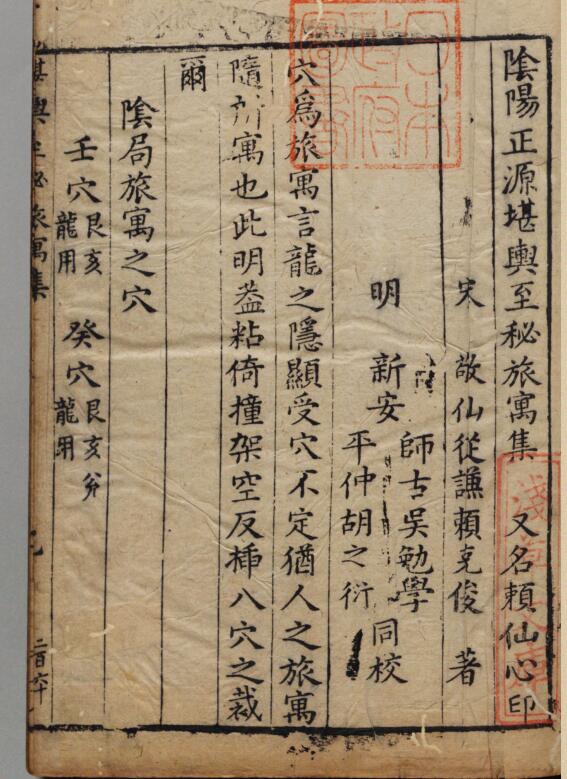 陰陽正源堪輿至秘旅寓集 又名賴仙心印
宋 敬仙從謙賴克俊 著
師古吳勉學
明 新安 同校
平仲胡之衍
穴爲旅寓言龍之隱顯受穴不定猶人之旅寓
隨所寓也此明蓋粘倚撞架空反揷八穴之裁
爾
陰局旅寓之穴
壬穴艮亥龍用 癸穴艮亥分龍用
堪輿至秘旅寓集
日本政府圖書